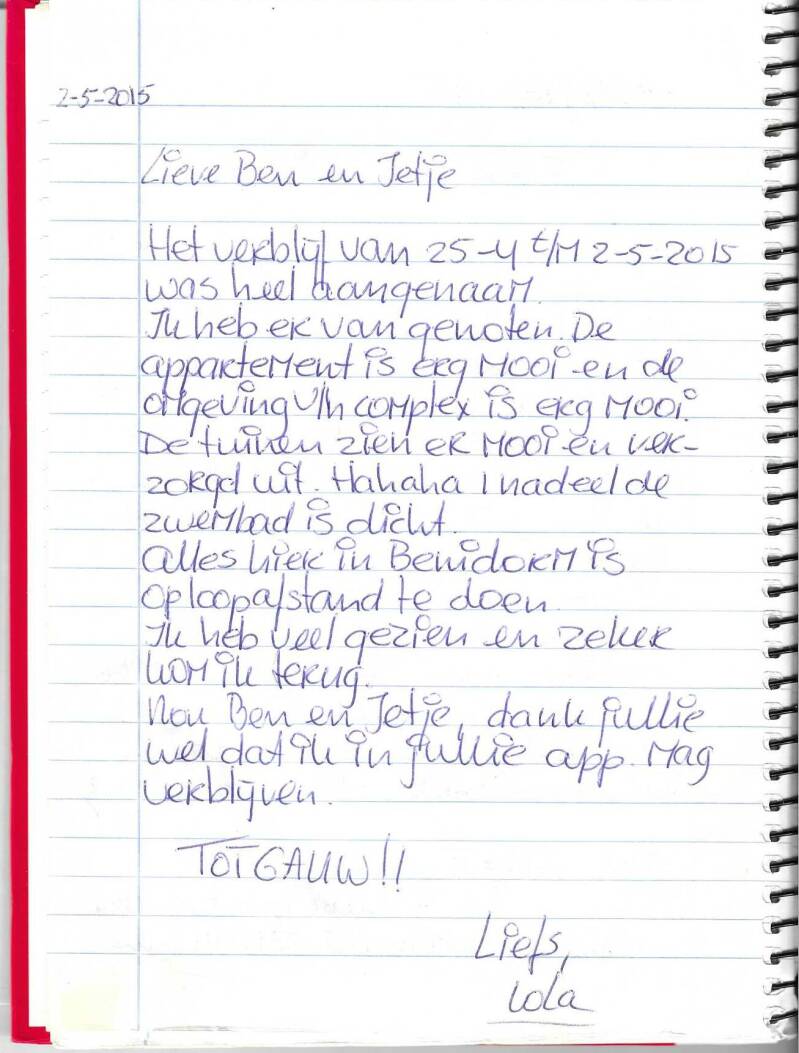 2-5-2015
Lieve Ben en Jetje
Het verblijf van 25-4 t/m 2-5-2015
was heel aangenaam.
Ik heb er van genoten. De
appartement is erg mooi en de
omgeving v/h complex is erg mooi.
De tuinen zien er mooi en ver-
zorgd uit. Hahaha 1 nadeel de
zwembad is dicht.
Alles hier in Benidorm is
op loopafstand te doen.
Ik heb veel gezien en zeker
kom ik terug.
Nou Ben en Jetje, dank jullie
wel dat ik in jullie app. mag
verblijven.
TOT GAUW!!
Liefs,
Lola